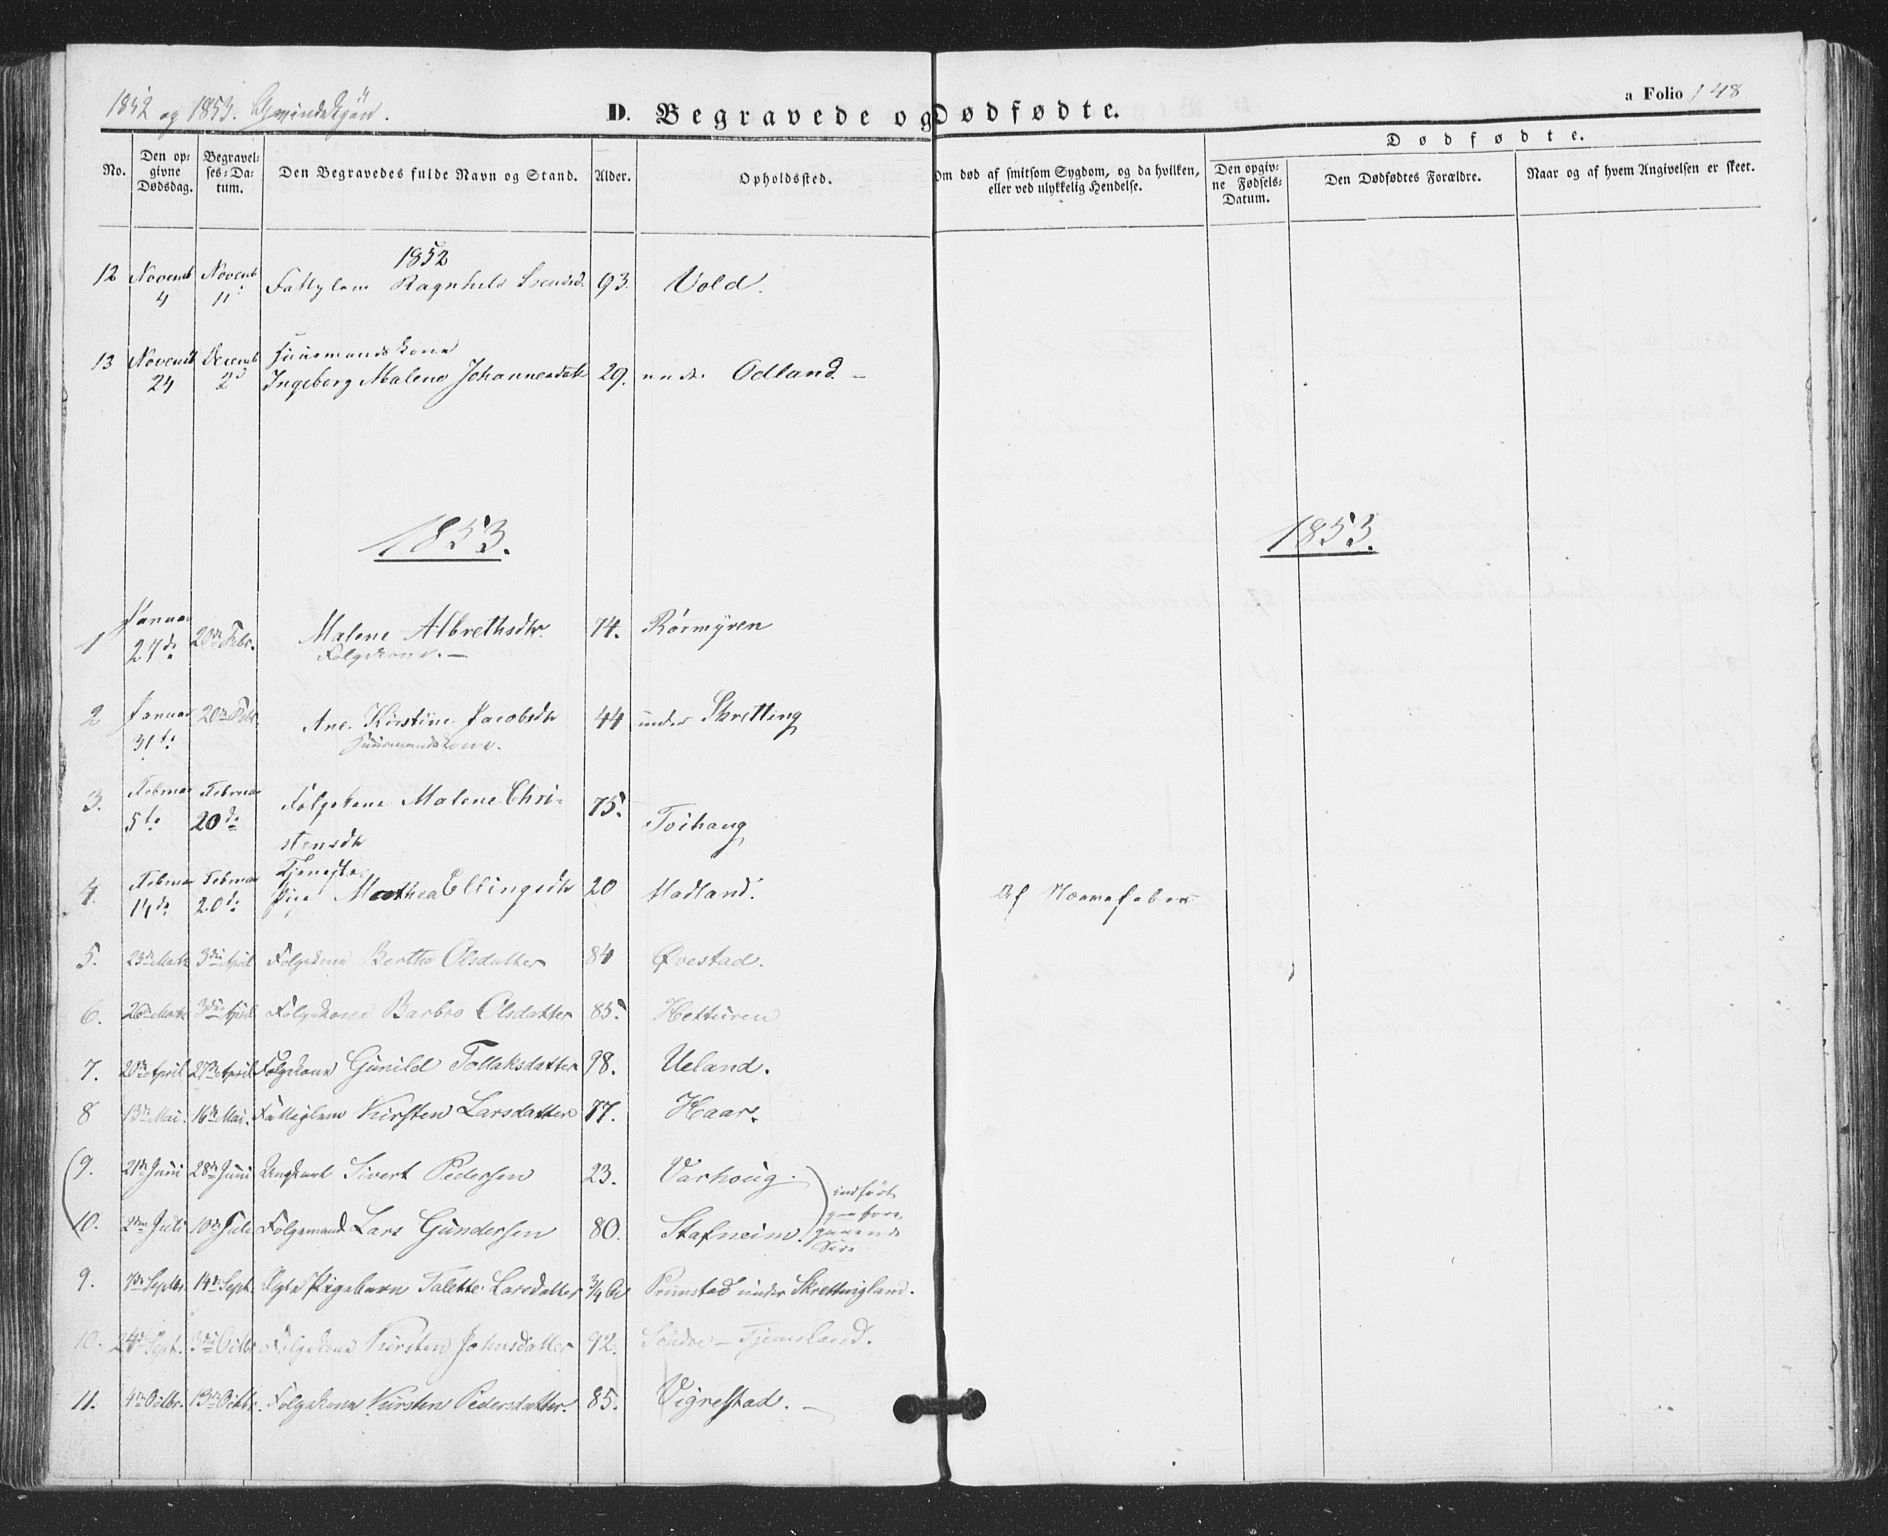 1852 og 1853. Qvindekjön.
D. Begravede og Dødfødte.
a Folio 148
Dødfødte.
No.
Den opgivne Dødsdag.
Begravelses-Datum.
Den Begravedes fulde Navn og Stand.
Alder.
Opholdssted.
Om død af smitsom Sygdom, og da hvilken, eller ved ulykkelig Hendelse.
Den opgivne Fødsels-Datum.
Den Dødfødtes Forældre.
Naar og af hvem Angivelsen er skeet.
1852
12 Novemb 4 Novemb 11 Fattiglem Ragnhild 93. Vold.
13 Novemb 24 Decemb 2d Huusmandskone Ingeborg Malene Johannesdatr 29. under Odland. –
1853. 1853.
1 Januar 27de 20de Febr. Malene Albrethsdtr. Folgekone. – 74. Rörmyren
2 Januar 31te 20de Febr. Ane Kirstine Jacobsdtr Huusmandskone. 44 under Skretting
3. Februar 5te Februar 20de Folgekone Malene Christensdtr 75. Toihaug
4. Februar 14de Februar 20de Tjeneste Pige Mathea Ellingsdtr 20 Madland. Af Nervefeber
5. 23de Marts 3die April Folgekone Berthe Olsdatter 84 Øvestad.
6. 26de Marts 3die April Folgekone Barbro Olsdatter 85. Hetturen
7. 20de April 27de April Folgekone Gunild Tollaksdatter 98. Ueland.
8 13de Mai. 16de Mai. Fattiglem Kirsten Larsdatter 77. Haar.
(9. 21de Juni 28de Juni Ungkarl Sivert Pedersen 23. Varhoug.
10. 2den Juli 10de Juli Folgemand Lars Gundersen 80. Stafneim.) indfört paa foregaaende Side
9. 7de Septbr. 14de Sept. Ægte Pigebarn Talette Larsdatter 3/4 Aar Prumstad under Skrettingland.
10. 24de Sept. 3die Octbr. Folgekone Kirsten Johnsdatter 92. Söndre – Tjemsland.
11. 4de Octbr. 13de Octbr. Folgekone Kirsten Pedersdatter. 85. Vigrestad. –